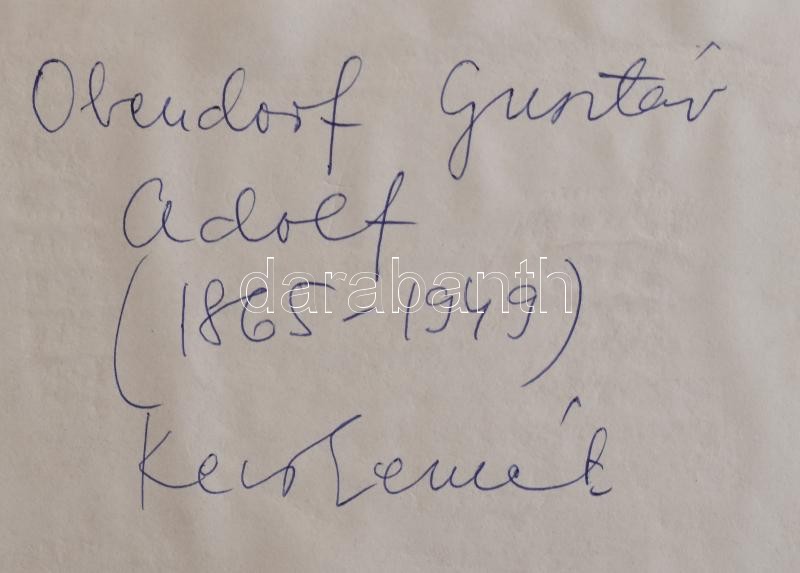 Obendorf Gusztáv
Adolf
(1865-1949)
darabanth
Kecskemét